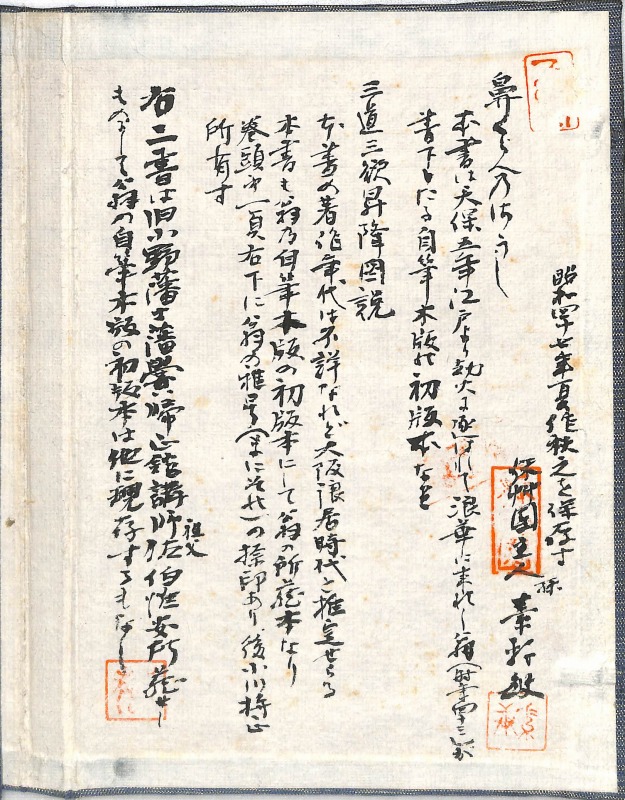 昭和四十七年夏作秩之を保存す
採艸園主人 孫 素軒
鼻くらべのさうし
本書は天保五年江戸より劫火に逐はれて浪華に来れし翁(時年四十三才)
書下したる自筆木版の初版本なり
三道三欲昇降図説
本書の著作年代は不詳なれど大阪浪居時代と推定せらる
本書も翁乃自筆木版の初版本にして翁の所蔵本なり
巻頭第一頁右下に翁の雅号(まにそれ)の捺印あり後小川
所有す
右二書は旧小野藩士藩黌帰正館講師祖父佐伯 所蔵せし
ものにして翁の自筆木版の初版本は他に現存するものなし